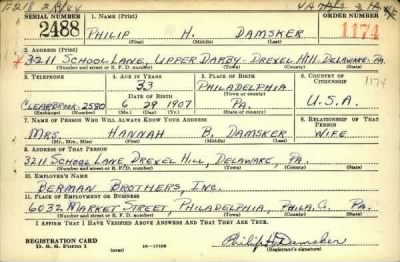 SERIAL NUMBER
1. NAME (Print)
ORDER NUMBER
2488
PHILIP H. DAMSKER
1174
(First) (Middle) (Last)
2. ADDRESS (Print)
3211 SCHOOL LANE, UPPER DARBY - DREXEL HILL, DELAWARE - PA.
(Number and street or R. F. D. number) (Town) (County) (State)
3. TELEPHONE
4. AGE IN YEARS
5. PLACE OF BIRTH
6. COUNTRY OF CITIZENSHIP
33
PHILADELPHIA
1174
DATE OF BIRTH
(Town or county)
CLEARBROOK-2580
6 29 1907
PA.
U.S.A.
(Exchange) (Number)
(Mo.) (Day) (Yr.)
(State or country)
7. NAME OF PERSON WHO WILL ALWAYS KNOW YOUR ADDRESS
8. RELATIONSHIP OF THAT PERSON
MRS. HANNAH B. DAMSKER
WIFE
(Mr., Mrs., Miss) (First) (Middle) (Last)
9. ADDRESS OF THAT PERSON
3211 SCHOOL LANE, DREXEL HILL, DELAWARE, PA.
(Number and street or R. F. D. number) (Town) (County) (State)
10. EMPLOYER'S NAME
BERMAN BROTHERS, INC.
11. PLACE OF EMPLOYMENT OR BUSINESS
6032 MARKET STREET, PHILADELPHIA, PHILA. C. PA.
(Number and street or R. F. D. number) (Town) (County) (State)
I AFFIRM THAT I HAVE VERIFIED ABOVE ANSWERS AND THAT THEY ARE TRUE.
REGISTRATION CARD
D. S. S. Form 1
Philip H. Damsker
(Registrant's signature)